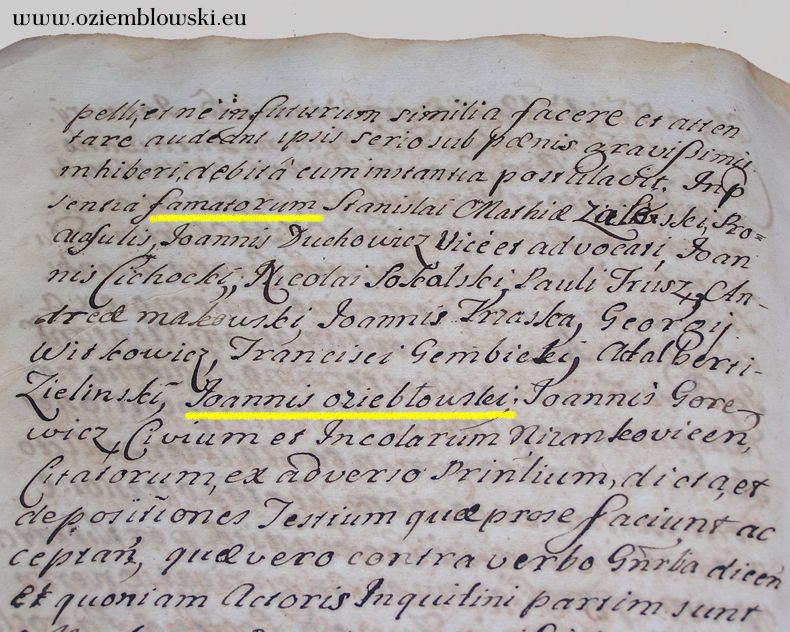 www.oziemblowski.eu
pelli, et ne in futurum similia facere et atten
tare audeant ipsis serio sub pœnis gravissimis
inhiberi, debitâ cum instantia postulavit. In p
sentiâ famatorum Stanislai Mathiæ Zaleski, Pro=
Consulis, Joannis Duchowicz Vice et advocati, Joan
nis Cichocki, Nicolai Sokalski, Pauli Trusz, An-
dreæ makowski, Joannis Krzaska, Georgij
Witkowicz, Francisci Gembicki, Adalberti-
Zielinski, Joannis oziebłowski, Joannis Gore-
wicz, Civium et Incolarum Nizankovicen,
Citatorum, ex adverso Prinlium, dicta, et
depositiones Testium quæ pro se faciunt ac
ceptan, quæ vero contra verbo Gnrlia dicen
et quoniam Actoris Inquilini partim sunt